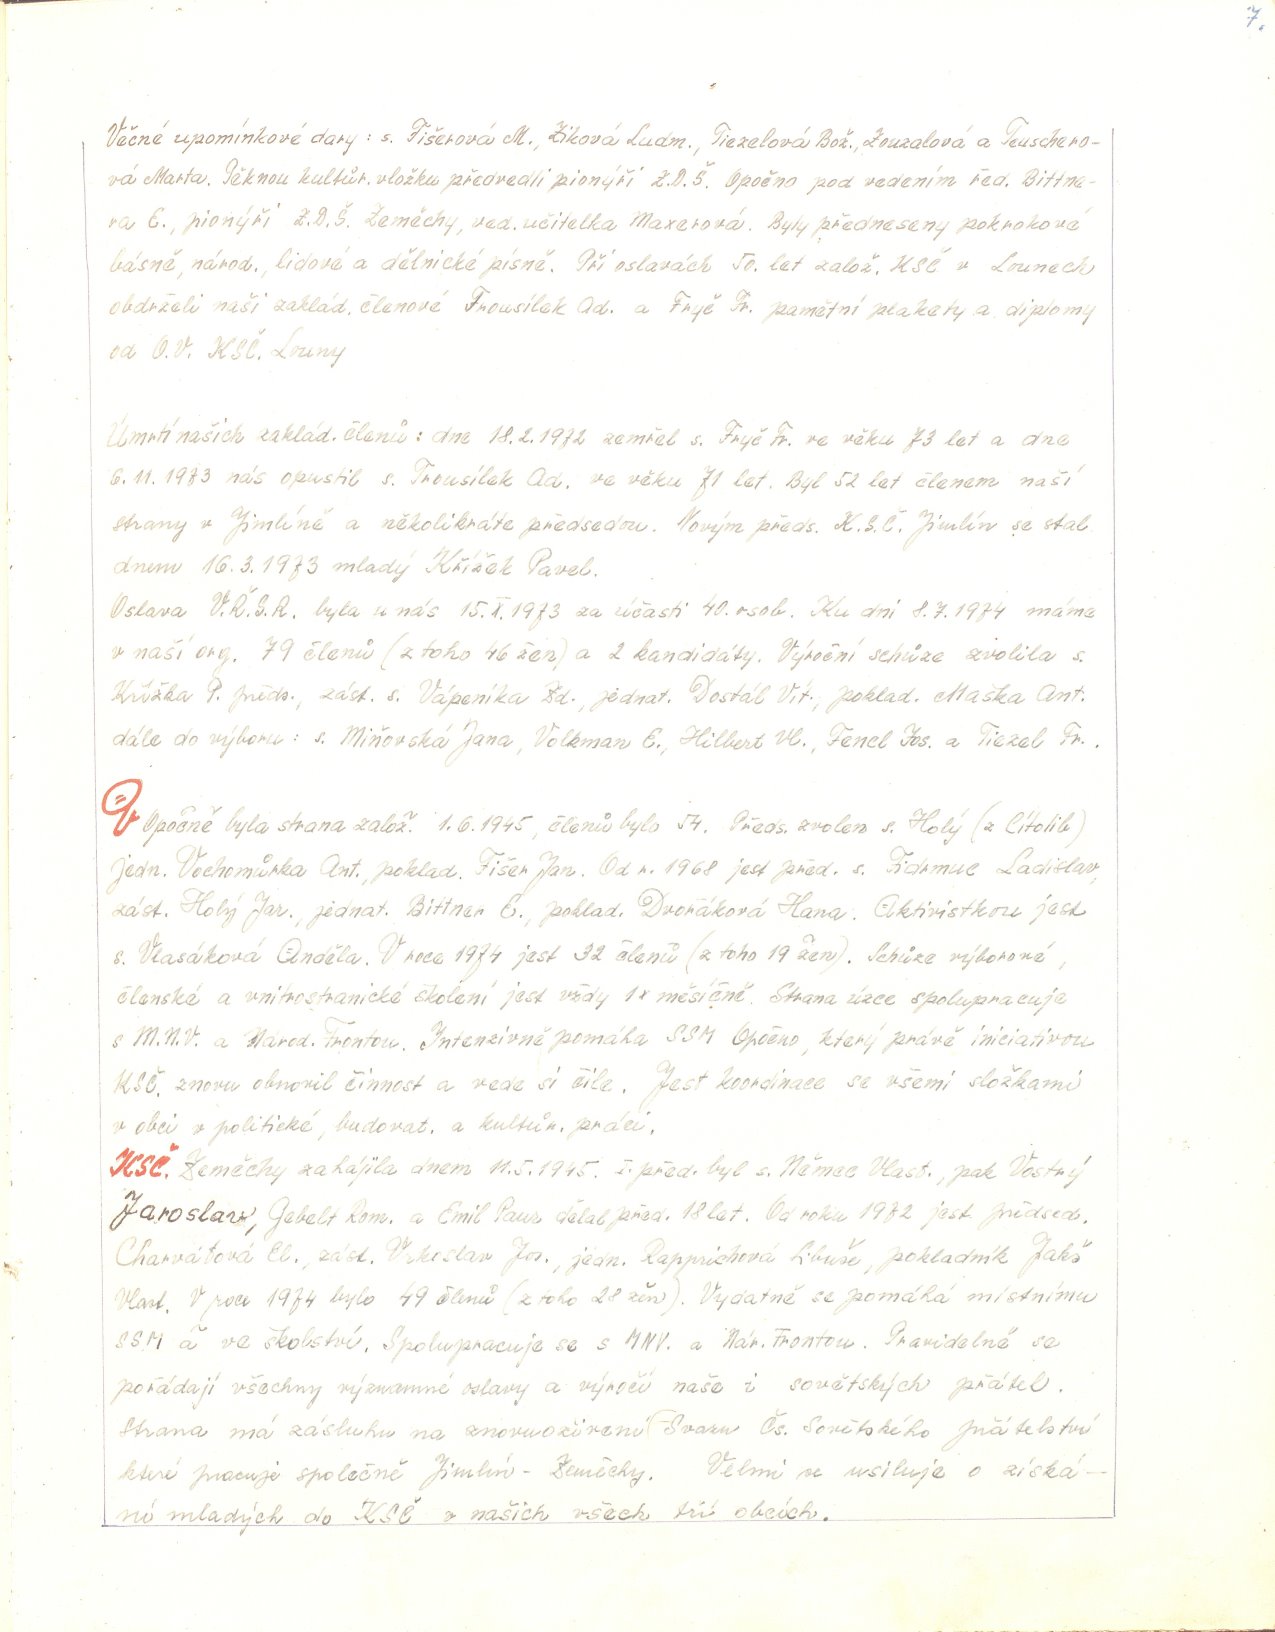 7.
Věčné upomínkové dary: s. Fišerová M., Ziková Ludm., Tiezelová Bož., Zouzalová a Teuschero-
vá Marta. Pěknou kultůr. vložku předvedli pionýři Z.D.Š. Opočno pod vedením řed. Bittne-
ra E., pionýři Z.D.Š. Zeměchy, ved. učitelka Maxerová. Byly předneseny pokrokové
básně, národ., lidové a dělnické písně. Při oslavách 50. let založ. KSČ v Lounech
obdrželi naši základ. členové Trousílek Ad. a Fryč Fr. pamětní plakety a diplomy
od O.V. KSČ. Louny
Úmrtí našich základ. členů: dne 18.2.1972 zemřel s. Fryč Fr. ve věku 73 let a dne
6.11.1973 nás opustil s. Trousílek Ad. ve věku 71 let. Byl 52 let členem naší
strany v Jimlíně a několikráte předsedou. Novým předs. K.S.Č. Jimlín se stal
dnem 16.3.1973 mladý Křížek Pavel.
Oslava V.Ř.S.R. byla u nás 15.X.1973 za účasti 40. osob. Ku dni 8.7.1974 máme
v naší org. 79 členů (z toho 46 žen) a 2 kandidáty. Výroční schůze zvolila s.
Křížka P. předs., zást. s. Vápeníka Zd., jednat. Dostál Vít., poklad. Maška Ant.
dále do výboru: s. Miňovská Jana, Volkman E., Hilbert Vl., Fencl Jos. a Tiezel Fr..
V Opočně byla strana založ. 1.6.1945, členů bylo 54. Předs. zvolen s. Holý (z Cítolib)
jedn. Vochomůrka Ant., poklad. Fišer Jan. Od r. 1968 jest před. s. Fidrmuc Ladislav,
zást. Holý Jar., jednat. Bittner E., poklad. Dvořáková Hana. Aktivistkou jest
s. Vlasáková Anděla. V roce 1974 jest 32 členů (z toho 19 žen). Schůze výborové,
členské a vnitrostranické školení jest vždy 1x měsíčně. Strana úzce spolupracuje
s M.N.V. a Národ. Frontou. Intenzivně pomáha SSM Opočno, který právě iniciativou
KSČ. znovu obnovil činnost a vede si čile. Jest koordinace se všemi složkami
v obci v politické, budovat. a kultůr. práci.
KSČ. Zeměchy zahájila dnem 11.5.1945. I. před. byl s. Němec Vlast., pak Vostrý
Jaroslav, Gebelt Rom. a Emil Paur dělal před. 18 let. Od roku 1972 jest předsed.
Charvátová El., zást. Vskoslav Jos., jedn. Rapprichová Libuše, pokladník Jakš
Vlast. V roce 1974 bylo 49 členů (z toho 28 žen). Vydatně se pomáhá místnímu
SSM a ve školství. Spolupracuje se s MNV. a Nár. Frontou. Pravidelně se
pořádají všechny významné oslavy a výročí naše i sovětských přátel.
Strana má zásluhu na znovuoživení Svazu Čs. Sovětského přátelství
které pracuje společně Jimlín - Zeměchy. Velmi se usiluje o získá-
ní mladých do KSČ v našich všech tří obcích.